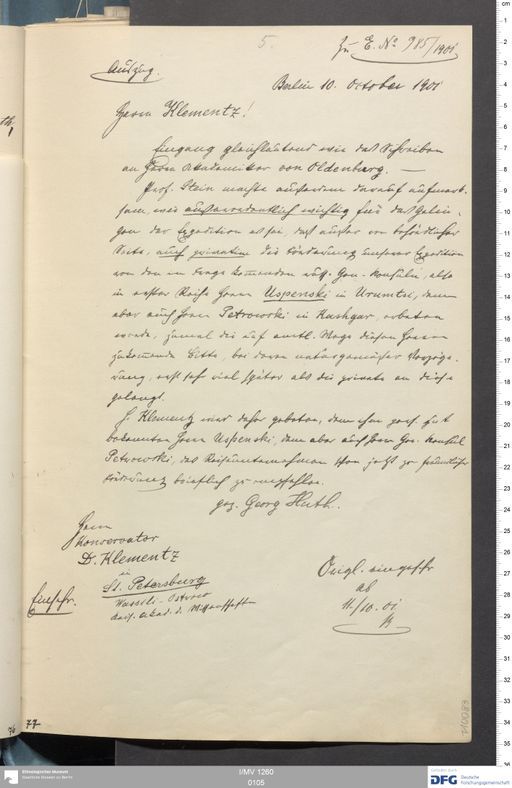 5.
Zu E. No 985/1901
Auszug.
Berlin 10. October 1901
Herrn Klementz!
Eingang gleichlautend wie das Schreiben
an Herrn Akademiker von Oldenburg. —
Prof. Stein machte ausserdem darauf aufmerk-
sam, wie ausserordentlich wichtig für das Gelin-
gen der Expedition es sei, dass ausser von behördlicher
Seite, auch privatim die Förderung unserer Expedition
von den in Frage kommenden russ. Gen.-Konsuln, also
in erster Reihe Herrn Uspenski in Urumtsi, dann
aber auch Herrn Petrowski in Kashgar, erbeten
werde, zumal die auf amtl. Wege diesen Herren
zukommende Bitte, bei deren naturgemässer Verzöge-
rung, erst sehr viel später als die private an diese
gelangt.
H. Klementz wird daher gebeten, dem ihm pers. gut
bekannten Herrn Uspenski, dann aber auch Herrn Gen. Konsul
Petrowski, das Reiseunternehmen schon jetzt zu freundlicher
Förderung brieflich zu empfehlen.
gez. Georg Huth.
Herrn
Konservator
D. Klementz
in
St. Petersburg
Wassili-Ostrow
Kais. Akad. d. Wissenschaften
Einschr.
Origl. eingeschr
ab
11./10. 01
76
77
I/MV 1260
0105
Ethnologisches Museum
Staatliche Museen zu Berlin
DFG
Deutsche
Forschungsgemeinschaft